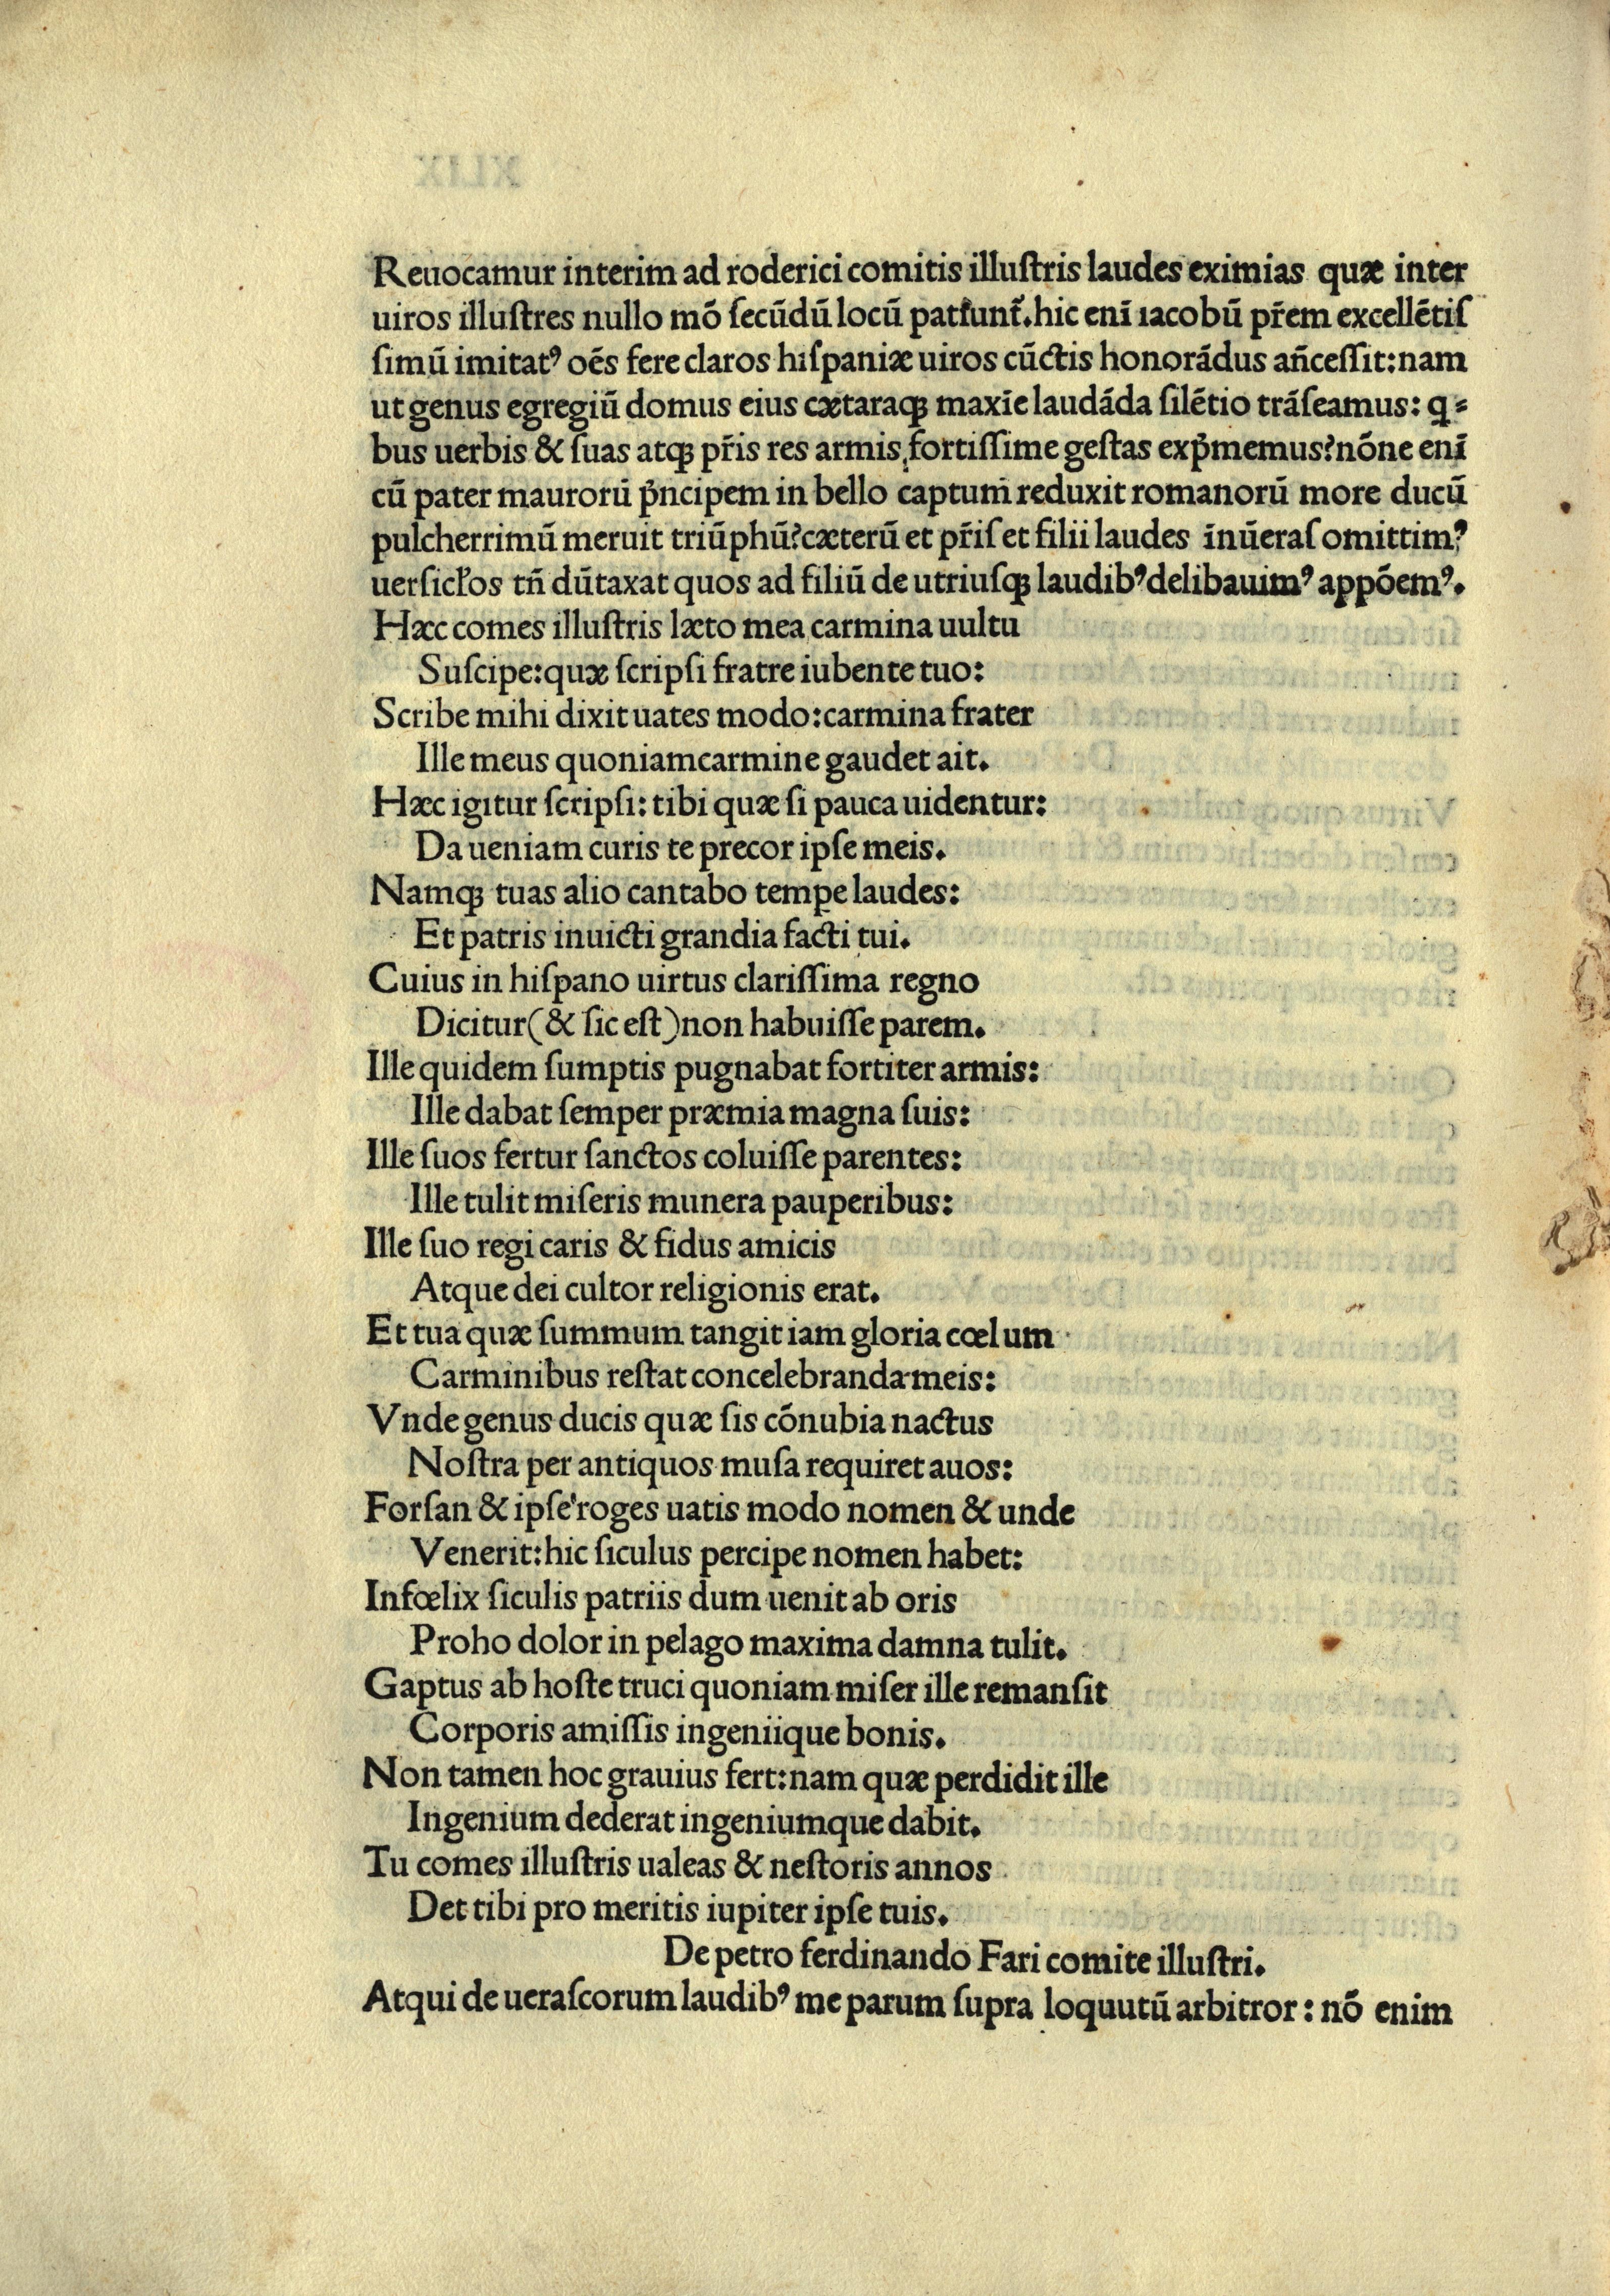 Reuocamur interim ad roderici comitis illuſtris laudes eximias quæ inter
uiros illuſtres nullo mō ſecūdū locū patſunt̃.hic enī iacobū pr̃em excellētiſ
ſimū imitatꝰ oēs fere claros hiſpaniæ uiros cūctis honorādus añceſſit:nam
ut genus egregiū domus eius cætaraqꝫ maxīe laudāda ſilētio trāſeamus: q̄⸗
bus uerbis & ſuas atqꝫ pr̃is res armis fortiſſime geſtas exp̃memus?nōne enī
cū pater maurorū p̃ncipem in bello captum reduxit romanorū more ducū
pulcherrimū meruit triūphū?cæterū et pr̃iſ et filii laudes īnūeraſ omittimꝰ
uerſicłos tñ dūtaxat quos ad filiū de utriuſqꝫ laudibꝰ delibauimꝰ appōemꝰ.
Hæc comes illuſtris læto mea carmina uultu
Suſcipe:quæ ſcripſi fratre iubente tuo:
Scribe mihi dixit uates modo:carmina frater
Ille meus quoniamcarmine gaudet ait.
Hæc igitur ſcripſi: tibi quæ ſi pauca uidentur:
Da ueniam curis te precor ipſe meis.
Namqꝫ tuas alio cantabo tempe laudes:
Et patris inuicti grandia facti tui.
Cuius in hiſpano uirtus clariſſima regno
Dicitur(& ſic eſt)non habuiſſe parem.
Ille quidem ſumptis pugnabat fortiter armis:
Ille dabat ſemper præmia magna ſuis:
Ille ſuos fertur ſanctos coluiſſe parentes:
Ille tulit miſeris munera pauperibus:
Ille ſuo regi caris & fidus amicis
Atque dei cultor religionis erat.
Et tua quæ ſummum tangit iam gloria cœlum
Carminibus reſtat concelebranda meis:
Vnde genus ducis quæ ſis cōnubia nactus
Noſtra per antiquos muſa requiret auos:
Forſan & ipſe roges uatis modo nomen & unde
Venerit:hic ſiculus percipe nomen habet:
Infœlix ſiculis patriis dum uenit ab oris
Proho dolor in pelago maxima damna tulit.
Gaptus ab hoſte truci quoniam miſer ille remanſit
Corporis amiſſis ingeniique bonis.
Non tamen hoc grauius fert:nam quæ perdidit ille
Ingenium dederat ingeniumque dabit.
Tu comes illuſtris ualeas & neſtoris annos
Det tibi pro meritis iupiter ipſe tuis.
De petro ferdinando Fari comite illuſtri.
Atqui de ueraſcorum laudibꝰ me parum ſupra loquutū arbitror: nō enim